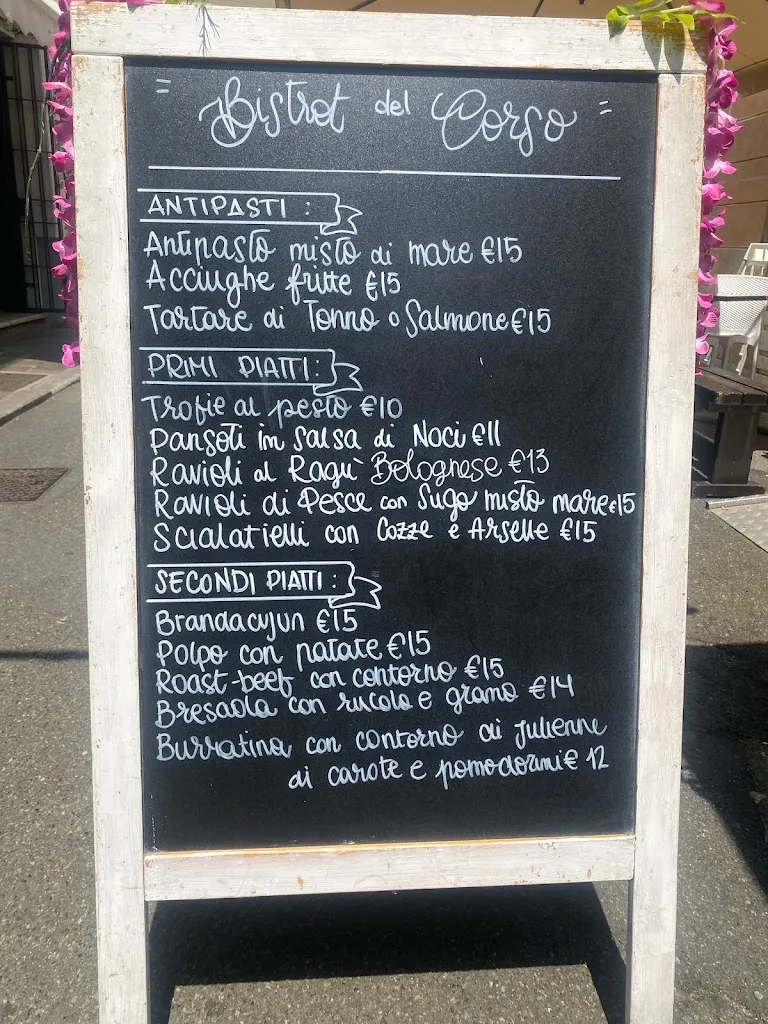 = Bistrot del Corso =
ANTIPASTI :
Antipasto misto di mare €15
Acciughe fritte €15
Tartare di Tonno o Salmone €15
PRIMI PIATTI :
Trofie al pesto €10
Pansoti in Salsa di Noci €11
Ravioli al Ragù Bolognese €13
Ravioli di Pesce con Sugo misto mare €15
Scialatielli con Cozze e Arselle €15
SECONDI PIATTI :
Brandacujun €15
Polpo con patate €15
Roast-beef con contorno €15
Bresaola con rucola e grana €14
Burratina con contorno di Julienne
di carote e pomodorini € 12